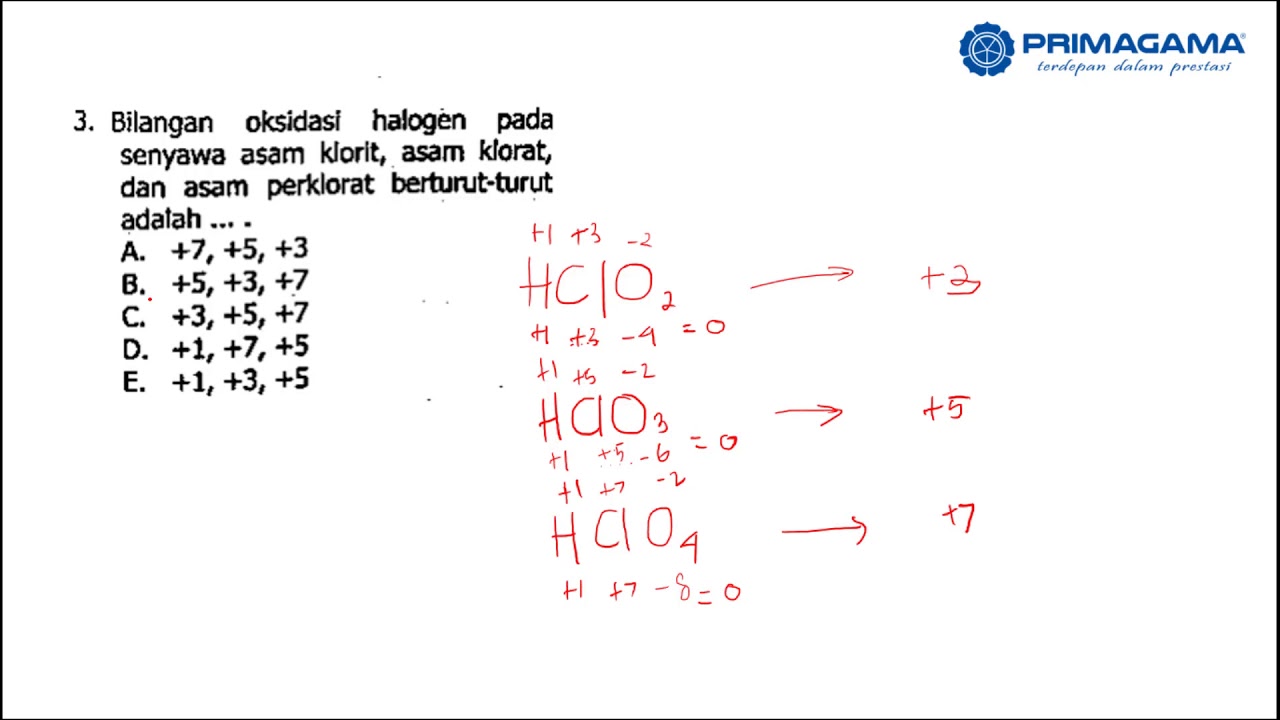 PRIMAGAMA
terdepan dalam prestasi
3. Bilangan oksidasi halogen pada
senyawa asam klorit, asam klorat,
dan asam perklorat berturut-turut
adalah ... .
A. +7, +5, +3
B. +5, +3, +7
C. +3, +5, +7
D. +1, +7, +5
E. +1, +3, +5
+1 +3 -2
HClO2 → +3
+1 +3 -4 = 0
+1 +5 -2
HClO3 → +5
+1 +5 -6 = 0
+1 +7 -2
HClO4 → +7
+1 +7 -8 = 0